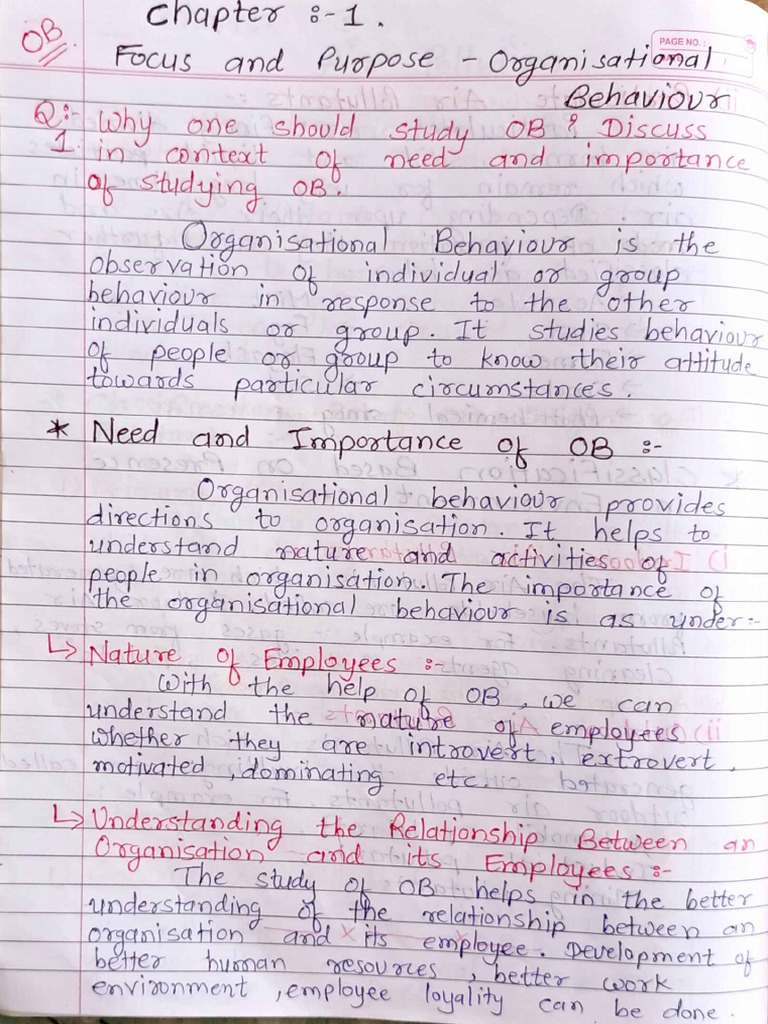 OB
Chapter :- 1.
PAGE NO.:
Focus and Purpose - Organisational
Behaviour
Q:- Why one should study OB ? Discuss
1. in context of need and importance
of studying OB.
Organisational Behaviour is the
observation of individual or group
behaviour in response to the other
individuals or group. It studies behaviour
of people or group to know their attitude
towards particular circumstances.
* Need and Importance of OB :-
Organisational behaviour provides
directions to organisation. It helps to
understand nature and activities of
people in organisation. The importance of
the organisational behaviour is as under:-
↳ Nature of Employees :-
With the help of OB, we can
understand the nature of employees
whether they are introvert, extrovert,
motivated, dominating etc.
↳ Understanding the Relationship Between an
Organisation and its Employees :-
The study of OB helps in the better
understanding of the relationship between an
organisation and its employee. Development of
better human resources, better work
environment, employee loyality can be done.